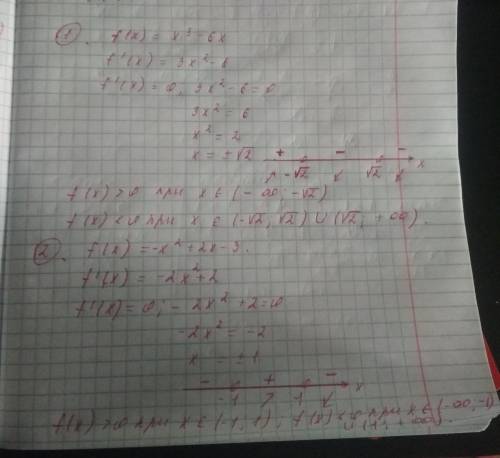 1. f(x) = x³ - 6x
f'(x) = 3x² - 6
f'(x) = 0, 3x² - 6 = 0
3x² = 6
x² = 2
x = ±√2
+ - -
-√2 √2 x
f(x) > 0 при x ∈ (-∞; -√2)
f(x) < 0 при x ∈ (-√2, √2) ∪ (√2; +∞).
2. f(x) = -x² + 2x - 3.
f'(x) = -2x² + 2
f'(x) = 0; -2x² + 2 = 0
-2x² = -2
x ±1
- + -
-1 1 x
f(x) > 0 при x ∈ (-1, 1), f(x) < 0 при x ∈ (-∞, -1)
∪ (1, +∞).